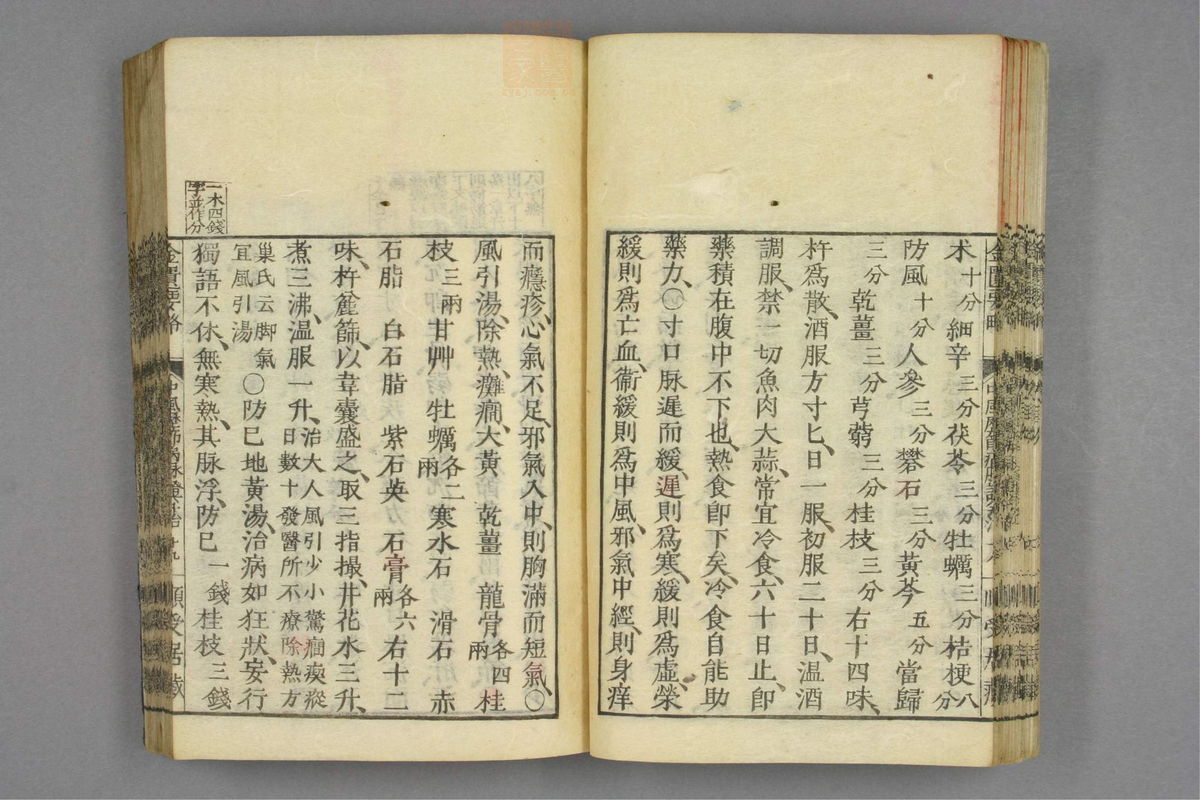 术十分細辛三分茯苓三分牡蠣三分桔梗八分
防風十分人參三分礬石三分黃芩五分當歸
三分乾薑三分芎藭三分桂枝三分右十四味、
杵爲散、酒服方寸匕、日一服、初服二十日、温酒
調服、禁一切魚肉大蒜、常宜冷食、六十日止、卽
藥積在腹中不下也、熱食卽下矣、冷食自能助
藥力、〇寸口脉遲而緩、遲則爲寒、緩則爲虛、榮
緩則爲亡血、衞緩則爲中風、邪氣中經、則身痒
而癮疹、心氣不足、邪氣入中、則胸滿而短氣、〇
風引湯、除熱癱癎、大黃 乾薑 龍骨各四兩 桂
枝三兩 甘艸 牡蠣各二兩 寒水石 滑石 赤
石脂 白石脂 紫石英 石膏各六兩 右十二
味、杵麄篩、以韋囊盛之、取三指撮、井花水三升、
煮三沸、温服一升、治大人風引少小驚癎瘈瘲
日數十發醫所不療除熱方
巢氏云脚氣
宜風引湯 〇防巳地黃湯、治病如狂狀、妄行
獨語不休、無寒熱、其脉浮、防巳一錢桂枝三錢
一本四錢
字並作分
金匱要略
十九